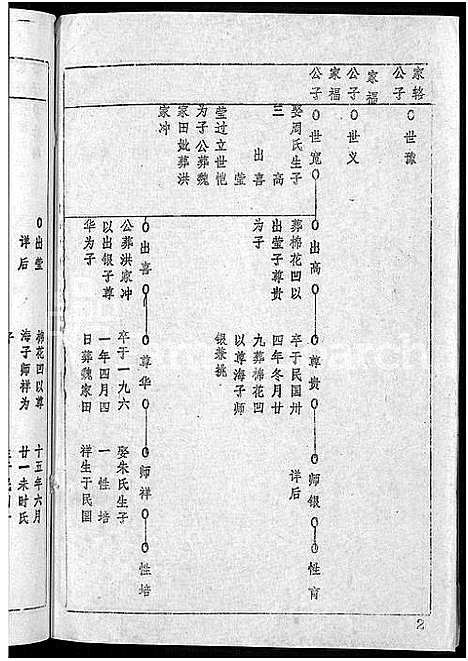 家辂
公子
○世豫
家福
公子
○世义
家福
公子
○世宽○
○出高○
○尊贵○
○师银○
○性育
娶周氏生子
三 高
出喜
莹
莹过立世恺
为子公葬魏
家田妣葬洪
家冲
葬棉花凹以
出莹子尊贵
为子
卒于民国卅
四年冬月廿
九葬棉花凹
以尊海子师
银兼挑
详后
○出喜○
○尊华○
○师祥○
○性培
公葬洪家冲
以出银子尊
华为子
卒于一九六
一年四月四
日葬魏家田
娶朱氏生子
一 性培
祥生于民国
2
○出莹
详后
棉花凹以尊
海子师祥为
子
十五年六月
廿一未时氏